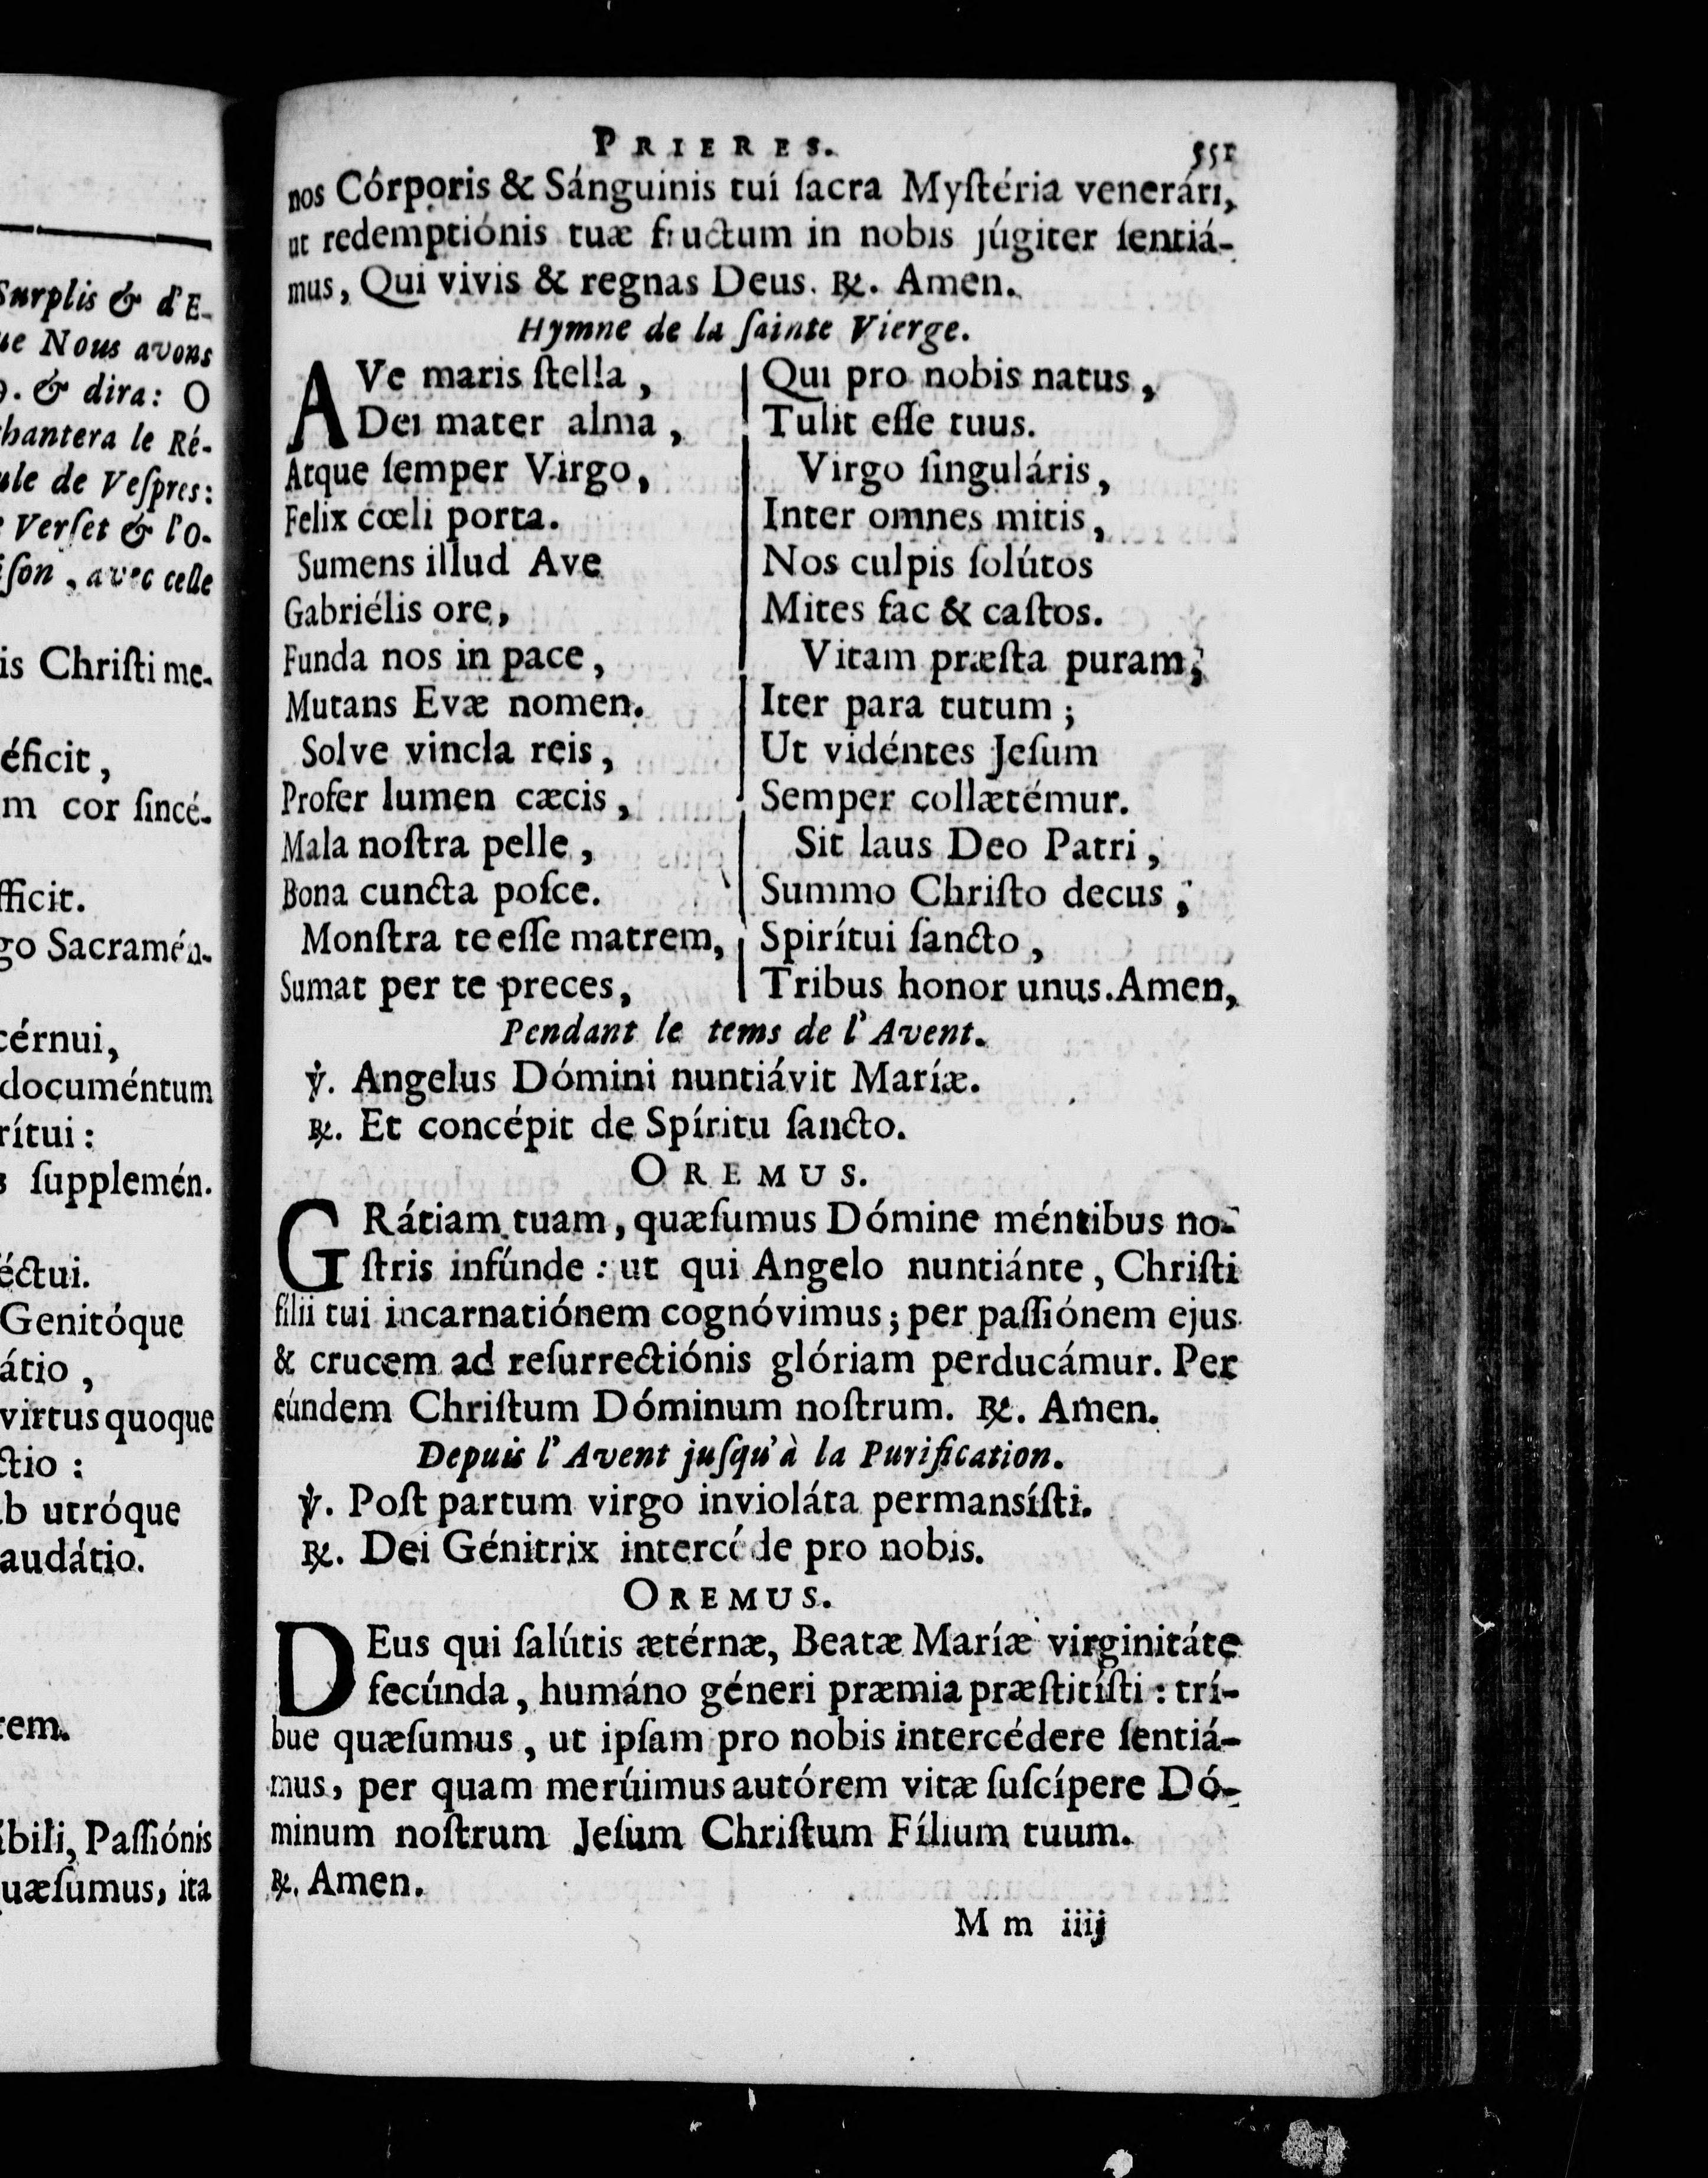 Surplis & d'E-
ue Nous avons
. & dira: O
hantera le Ré-
ule de Veſpres:
Verſet & l'O-
iſon, avec celle
is Chriſti me-
éficit,
m cor ſincé-
fficit.
go Sacramén-
cérnui,
documéntum
rítui:
s ſupplemén-
éctui.
Genitóque
átio,
virtus quoque
ctio:
ab utróque
audátio.
rem.
íbili, Paſſiónis
quæſumus, ita
PRIERES. 551
nos Córporis & Sánguinis tui ſacra Myſtéria venerári,
ut redemptiónis tuæ fructum in nobis júgiter ſentiá-
mus, Qui vivis & regnas Deus. ℟. Amen.
Hymne de la ſainte Vierge.
AVe maris ſtella,
Dei mater alma,
Atque ſemper Virgo,
Felix cœli porta.
Sumens illud Ave
Gabriélis ore,
Funda nos in pace,
Mutans Evæ nomen.
Solve vincla reis,
Profer lumen cæcis,
Mala noſtra pelle,
Bona cuncta poſce.
Monſtra te eſſe matrem,
Sumat per te preces,
Qui pro nobis natus,
Tulit eſſe tuus.
Virgo ſinguláris,
Inter omnes mitis,
Nos culpis ſolútos
Mites fac & caſtos.
Vitam præſta puram,
Iter para tutum;
Ut vidéntes Jeſum
Semper collætémur.
Sit laus Deo Patri,
Summo Chriſto decus;
Spirítui ſancto,
Tribus honor unus. Amen,
Pendant le tems de l'Avent.
℣. Angelus Dómini nuntiávit Maríæ.
℟. Et concépit de Spíritu ſancto.
OREMUS.
GRátiam tuam, quæſumus Dómine méntibus no-
ſtris infúnde: ut qui Angelo nuntiánte, Chriſti
filii tui incarnatiónem cognóvimus; per paſſiónem ejus
& crucem ad reſurrectiónis glóriam perducámur. Per
eúndem Chriſtum Dóminum noſtrum. ℟. Amen.
Depuis l'Avent juſqu'à la Purification.
℣. Poſt partum virgo inviolára permansíſti.
℟. Dei Génitrix intercéde pro nobis.
OREMUS.
DEus qui ſalútis ætérnæ, Beatæ Maríæ virginitáte
fecúnda, humáno géneri præmia præſtitíſti: trí-
bue quæſumus, ut ipſam pro nobis intercédere ſentiá-
mus, per quam merúimus autórem vitæ ſuſcípere Dó-
minum noſtrum Jeſum Chriſtum Fílium tuum.
℟. Amen.
M m iiij